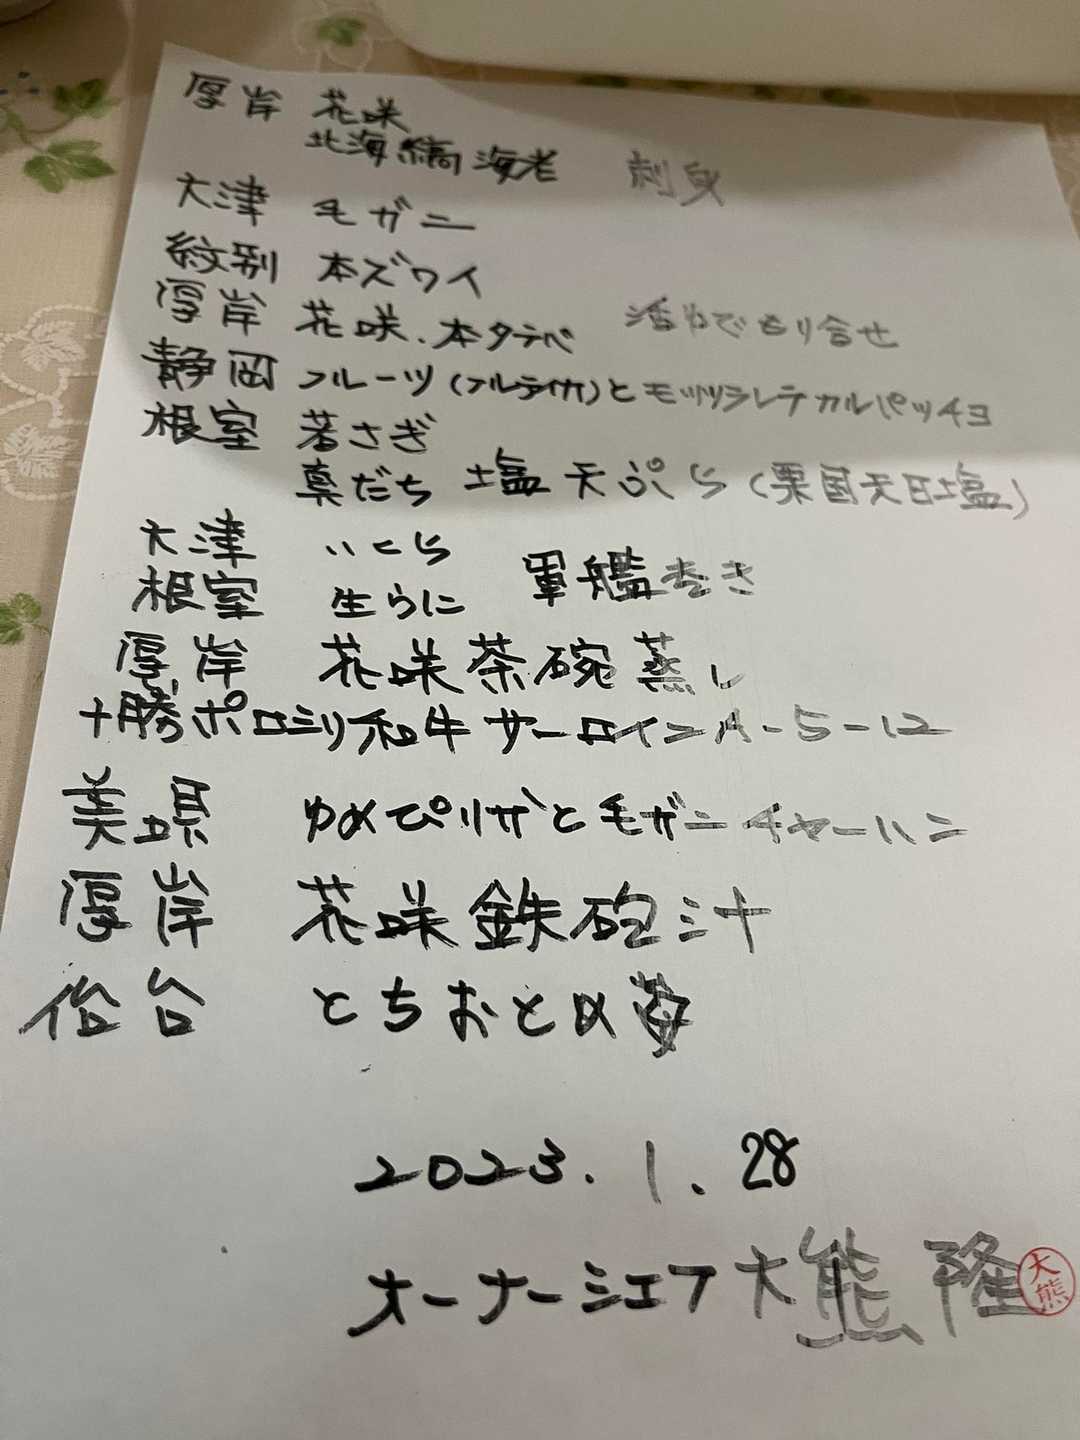 厚岸 花咲
北海縞海老 刺身
大津 毛ガニ
紋別 本ズワイ
厚岸 花咲、本タラバ 活ゆでもり合せ
静岡 フルーツ(フルティカ)とモッツァレラチカルパッチョ
根室 若さぎ
真だち 塩天ぷら(粟国天日塩)
大津 いくら
根室 生うに 軍艦巻き
厚岸 花咲茶碗蒸し
十勝ポロシリ和牛サーロインA-5-12
美瑛 ゆめぴりかと毛ガニチャーハン
厚岸 花咲鉄砲汁
仙台 とちおとめ苺
2023.1.28
オーナーシェフ大熊 隆
大熊